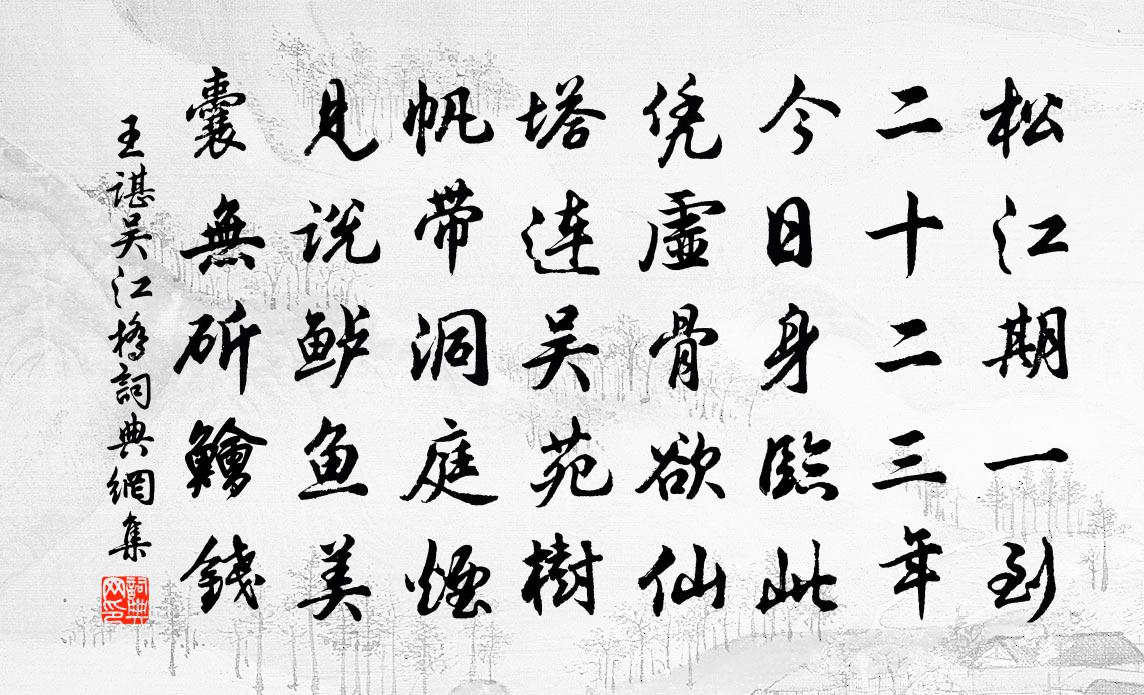 松江期一到
二十二三年
今日身臨此
凭虛骨欲仙
塔連吴苑樹
帆带洞庭煙
見説鲈鱼美
囊無斫鱠錢
王谌吴江橋詞典網集
詞典文印